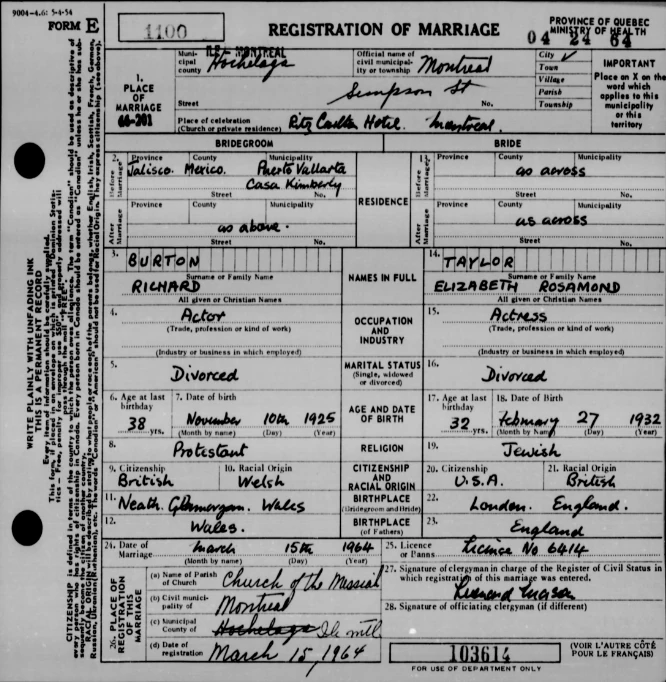 9004-4.6: 5-4-54
FORM E
1100
REGISTRATION OF MARRIAGE
PROVINCE OF QUEBEC
MINISTRY OF HEALTH
04 24 64
1.
PLACE
OF
MARRIAGE
66-201
Municipal county
ILE MONTREAL
Hochelaga
Official name of civil municipality or township
Montreal
City ✓
Town
Village
Parish
Township
IMPORTANT
Place an X on the
word which
applies to this
municipality
or this
territory
Street
Simpson St
No.
Place of celebration
(Church or private residence)
Ritz Carlton Hotel. Montreal
BRIDEGROOM
BRIDE
2.
Before Marriage
Province County Municipality
Jalisco. Mexico. Puerto Vallarta
Casa Kimberly
Street No.
After Marriage
Province County Municipality
as above.
Street No.
RESIDENCE
13.
Before Marriage
Province County Municipality
as across
Street No.
After Marriage
Province County Municipality
as across
Street No.
3.
BURTON
Surname or Family Name
RICHARD
All given or Christian Names
NAMES IN FULL
14.
TAYLOR
Surname or Family Name
ELIZABETH ROSAMOND
All given or Christian Names
4.
Actor
(Trade, profession or kind of work)
(Industry or business in which employed)
OCCUPATION
AND
INDUSTRY
15.
Actress
(Trade, profession or kind of work)
(Industry or business in which employed)
5.
Divorced
MARITAL STATUS
(Single, widowed
or divorced)
16.
Divorced
6. Age at last birthday
38 yrs.
7. Date of birth
November 10th 1925
(Month by name) (Day) (Year)
AGE AND DATE
OF BIRTH
17. Age at last birthday
32 yrs.
18. Date of Birth
February 27 1932
(Month by Name) (Day) (Year)
8.
Protestant
RELIGION
19.
Jewish
9. Citizenship
British
10. Racial Origin
Welsh
CITIZENSHIP
AND
RACIAL ORIGIN
20. Citizenship
U.S.A.
21. Racial Origin
British
11.
Neath. Glamorgan. Wales
BIRTHPLACE
(Bridegroom and Bride)
22.
London. England.
12.
Wales.
BIRTHPLACE
(of Fathers)
23.
England
24. Date of Marriage
March 15th 1964
(Month by name) (Day) (Year)
25. Licence or Banns
Licence No 6414
26. PLACE OF REGISTRATION OF THIS MARRIAGE
(a) Name of Parish of Church
Church of the Messiah
(b) Civil municipality of
Montreal
(c) Municipal County of
Hochelaga
(d) Date of registration
March 15, 1964
27. Signature of clergyman in charge of the Register of Civil Status in
which registration of this marriage was entered.
Leonard Mason
28. Signature of officiating clergyman (if different)
103614
FOR USE OF DEPARTMENT ONLY
(VOIR L'AUTRE CÔTÉ
POUR LE FRANÇAIS)
WRITE PLAINLY WITH UNFADING INK
THIS IS A PERMANENT RECORD
Every item of information should be carefully supplied.